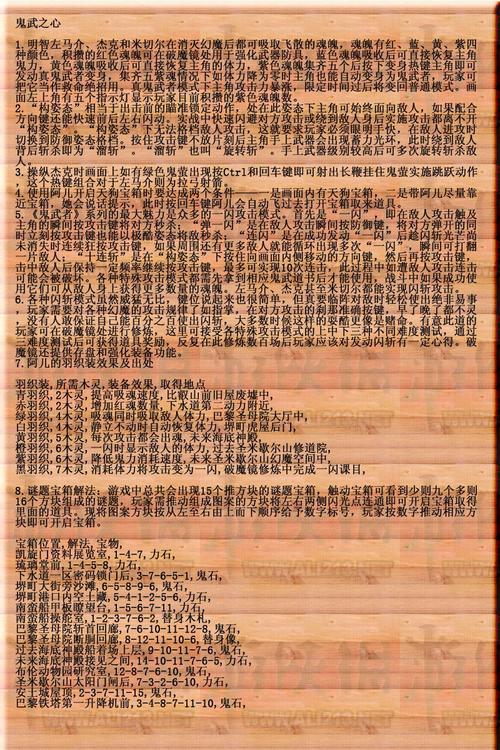 鬼武之心
1.明智左马介、杰克和米切尔在消灭幻魔后都可吸取飞散的魂魄，魂魄有红、蓝、黄、紫四
种颜色，积攒的红色魂魄可在破魔镜处用于强化武器防具，蓝色魂魄吸收后可直接恢复主角
鬼力，黄色魂魄吸收后可直接恢复主角的体力，紫色魂魄集齐五个后按下变身热键主角即可
发动真鬼武者变身，集齐五紫魂情况下如体力降为零时主角也能自动变身为鬼武者，玩家可
把它当作救命绝招用。真鬼武者模式下主角攻击力暴涨，限定时间过后将变回普通模式。画
面左上角有五个指示灯显示玩家目前积攒的紫色魂魄数。
2.“构姿态”相当于出击前的瞄准锁定动作，处在此姿态下主角可始终面向敌人，如果配合
方向键还能快速前后左右闪动。实战中快速闪避对方攻击或绕到敌人身后实施攻击都离不开
“构姿态”。“构姿态”下无法格档敌人攻击，这就要求玩家必须眼明手快，在敌人进攻时
切换到防御姿态格档。按住攻击键不放片刻后主角手上武器会出现蓄力光环，此时绕到敌人
背后斩杀即为“溜斩”。“溜斩”也叫“旋转斩”。手上武器级别较高后可多次旋转斩杀敌
人。
3.操纵杰克时画面上如有绿色鬼萤出现按Ctrl和回车键即可射出长鞭拄住鬼萤实施跳跃动作
，这个热键组合对于左马介则为拉弓射箭。
4.使用阿儿开启天狗宝箱时要达成两个条件———一是画面内有天狗宝箱，二是带阿儿尽量靠
近宝箱，她会说话提示，此时按回车键阿儿会自动飞过去打开宝箱取来道具。
5.《鬼武者》系列的最大魅力是众多的一闪攻击模式。首先是“一闪”，即在敌人攻击触及
主角的瞬间按攻击键将对方秒杀；“弹一闪”是在敌人攻击瞬间按防御键，将对方弹开的同
时立刻按攻击键也能以极酷姿态将敌秒杀；“连闪”是在成功发动“一闪”后趁闪斩光芒尚
未消失时连续狂按攻击键，如果周围还有更多敌人就能循环出现多次“一闪”，瞬间可打翻
一片敌人；“十连斩”是在“构姿态”下按住向画面内侧移动的方向键，然后再按攻击键，
击中敌人后保持一定频率继续按攻击键，最多可实现10次连击，此过程中如遭敌人攻击连击
可能会被破坏，各种特殊攻击模式都需先拿到相应鬼武道书后才能使用。战斗中如果成功使
用它们从敌人身上获得更多数量的魂魄。左马介、杰克甚至米切尔都能实现闪斩攻击。
6.各种闪斩模式虽然威猛无比，键位说起来也很简单，但真要临阵对敌时轻松使出绝非易事
，玩家需要对各种幻魔的攻击规律了如指掌，在对方攻击的刹那准确按键，早了晚了都不灵
，没有人敢保证自己能百分之百使出闪斩，大多数时候这样的耍酷更像是赌命。有意此道的
玩家可在破魔镜处进行修炼，这里可接受各特殊攻击模式的上中下三种不同难度测试，通过
三难度测试后可获得道具奖励。反复在此修炼数百场后玩家应该对发动闪斩有一定心得。破
魔镜还提供存盘和强化装备功能。
7.阿儿的羽织装效果及出处
羽织装,所需木灵,装备效果,取得地点
青羽织,2木灵,提高吸魂速度,比叡山前旧屋废墟中,
赤羽织,2木灵,增加红魂数量,下水道第二动力附近,
绿羽织,4木灵,吸魂同时吸取敌人体力,巴黎圣母院大厅中,
白羽织,4木灵,静立不动时自动恢复体力,堺町虎屋后门,
黄羽织,5木灵,每次攻击都会出魂,未来海底神殿,
橙羽织,6木灵,一闪时显示敌人的体力,过去圣米歇尔山修道院,
紫羽织,6木灵,降低鬼力消耗速度,未来圣米歇尔山幻魔空间中,
黑羽织,7木灵,消耗体力将攻击变为一闪,破魔镜修炼中完成一闪课目,
8.谜题宝箱解法：游戏中总共会出现15个推方块的谜题宝箱；触动宝箱可看到少则九个多则
16个方块组成的谜题，玩家需推动组成图案的方块将左右两侧闪光点连通即可开启宝箱取得
里面的道具。现将图案方块按从左至右由上面下顺序给予数字标号，玩家按数字推动相应方
块即可开启宝箱。
宝箱位置,解法,宝物,
凯旋门资料展览室,1-4-7,力石,
琉璃堂前,1-4-5-8,力石,
下水道一区密码锁门后,3-7-6-5-1,鬼石,
堺町大街旁沙滩,6-5-8-9-6,鬼石,
堺町港口内空土藏,5-4-1-2-5-6,力石,
南蛮船甲板瞭望台,1-5-6-7-11,力石,
南蛮船操舵室,1-2-3-7-6-2,替身木札,
巴黎圣母院斩首回廊,7-6-10-11-12-8,鬼石,
巴黎圣母院断脚回廊,8-12-11-10-6,替身像,
过去海底神殿船着场上层,9-10-11-7-6,鬼石,
未来海底神殿接见之间,14-10-11-7-6-5,力石,
布伦动物园研究室,12-8-7-6-10,鬼石,
圣米歇尔山太阳门闸后,7-3-2-6-10,力石,
安土城屋顶,2-3-7-11-15,鬼石,
巴黎铁塔第一升降机前,3-4-8-7-11-10,鬼石,